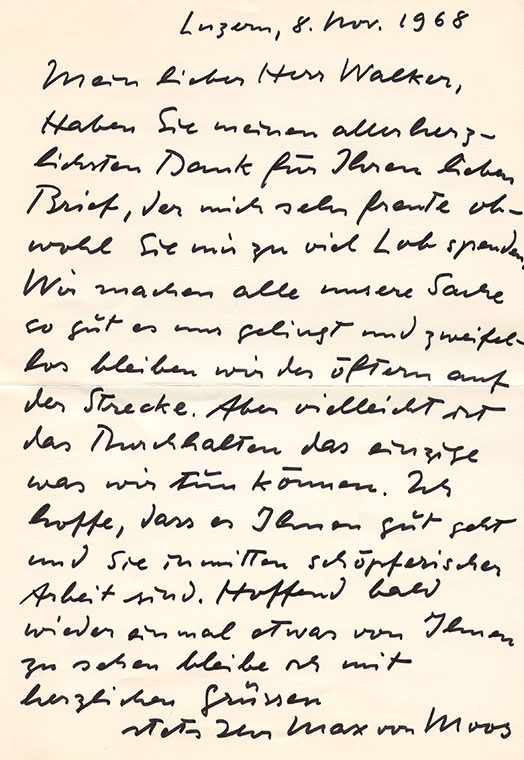 Luzern, 8. Nov. 1968
Mein lieber Herr Walker,
Haben Sie meinen allerherz-
lichsten Dank für Ihren lieben
Brief, der mich sehr freute ob-
wohl Sie mir zu viel Lob spenden
Wir machen alle unsere Sache
so gut es uns gelingt und zweifel-
los bleiben wir des öftern auf
der Strecke. Aber vielleicht ist
das Durchhalten das einzige
was wir tun können. Ich
hoffe, dass es Ihnen gut geht
und Sie inmitten schöpferischer
Arbeit sind. Hoffend bald
wieder einmal etwas von Ihnen
zu sehen bleibe ich mit
herzlichen Grüssen
stets Ihr Max von Moos